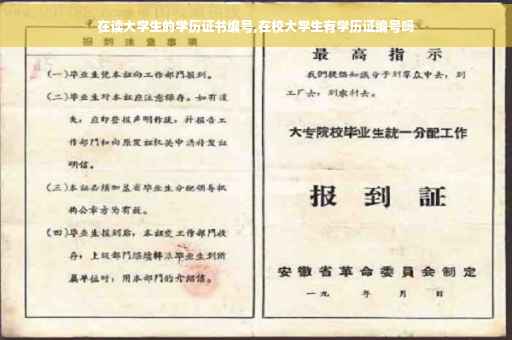 在读大学生的学历证书编号,在校大学生有学历证编号吗
报到注意事项
(一)毕业生凭本证向工作部門报到。
(二)毕业生对本証应注意保存。如有遗
失,应即登报声明作废,并报告工
作部門和向原发証机关申請补发证
明信。
(三)本証必须加盖省毕业生分配領导机
构公章方为有效。
(四)毕业生报到后,本証交工作部門收
存,上级部門
属单位时,用本部門的介绍信。
最高指示
我們提倡知識分子到羣众中去,到
工厂去,到农村去。
大专院校毕业生統一分配工作
报到証
安徽省革命委員会制定
一九 年 月 日